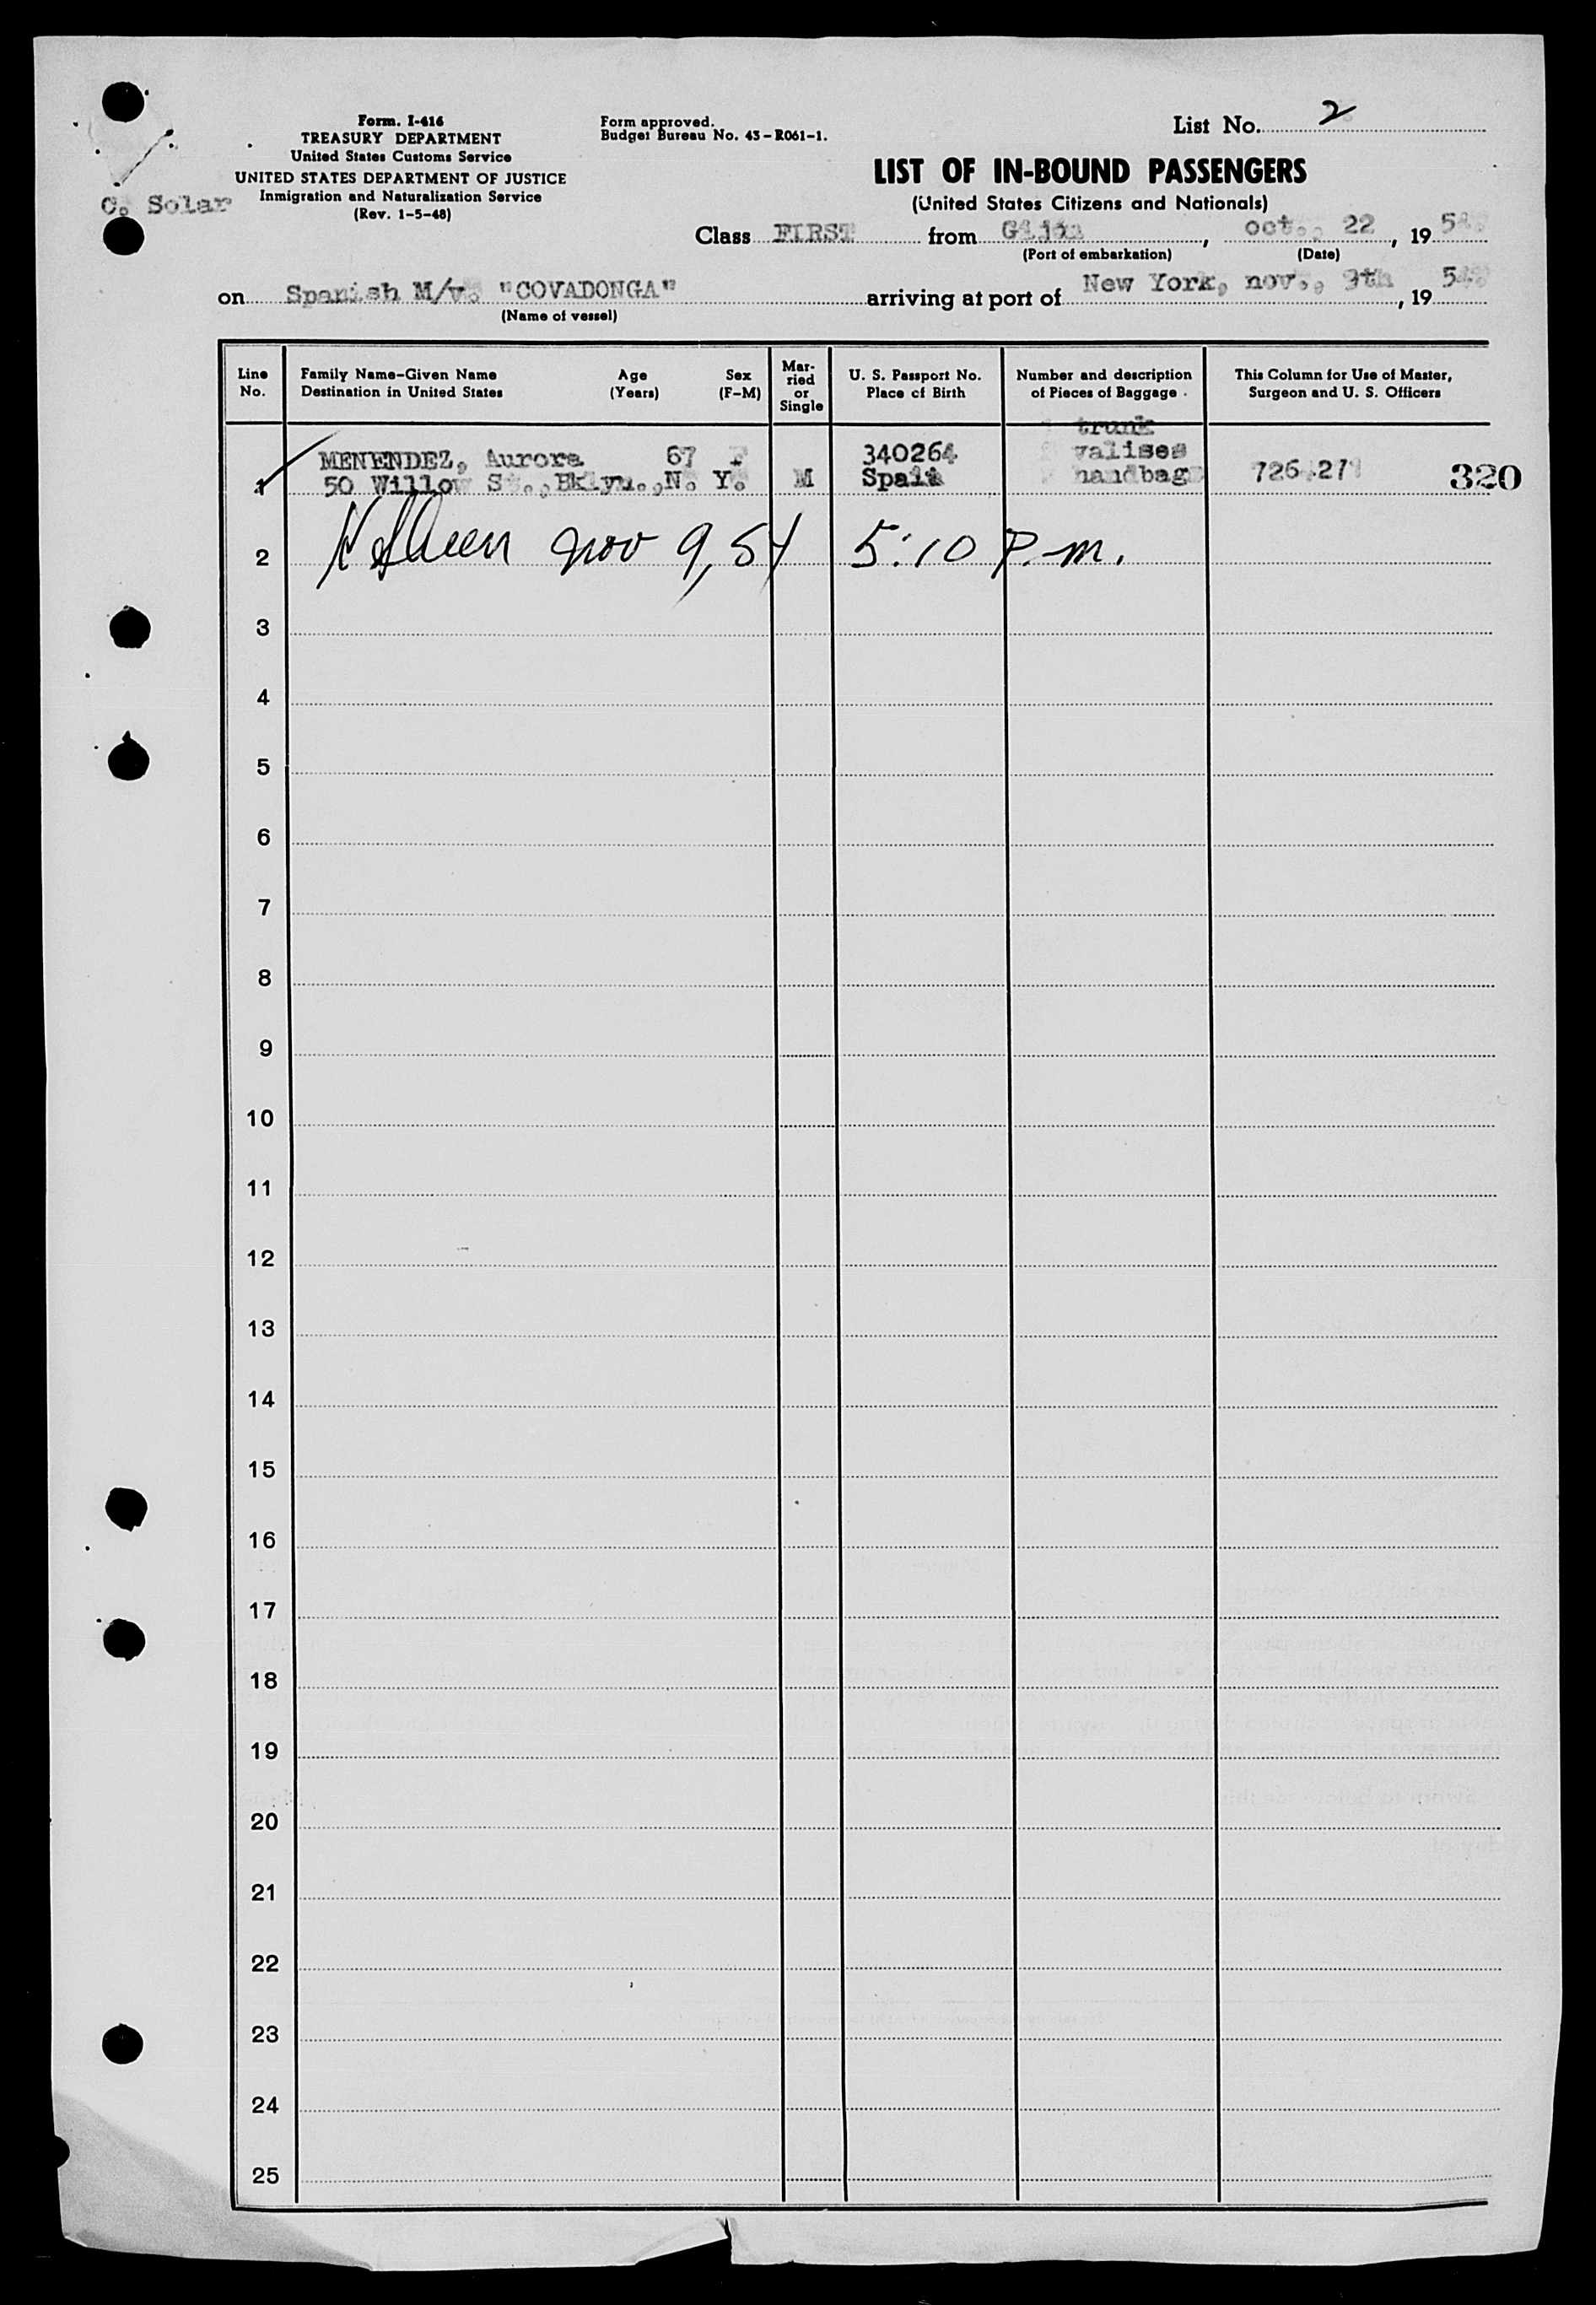 List No. 2
Form. I-416
TREASURY DEPARTMENT
United States Customs Service
UNITED STATES DEPARTMENT OF JUSTICE
Inmigration and Naturalization Service
(Rev. 1-5-48)
Form approved.
Budget Bureau No. 43-R061-1.
C. Solar
LIST OF IN-BOUND PASSENGERS
(United States Citizens and Nationals)
Class FIRST from Gijón, oct., 22, 1954
(Port of embarkation) (Date)
on Spanish M/v. "COVADONGA" arriving at port of New York, nov., 9th, 1954
(Name of vessel)
Line No.
Family Name-Given Name Age Sex
Destination in United States (Years) (F-M)
Mar-
ried
or
Single
U. S. Passport No.
Place of Birth
Number and description
of Pieces of Baggage
This Column for Use of Master,
Surgeon and U. S. Officers
trunk
MENENDEZ, Aurora 67 F 340264 valises
1 50 Willow St., Bklyn., N. Y. M Spain handbag 320
2 nov 9, 54 5:10 P.m.
3
4
5
6
7
8
9
10
11
12
13
14
15
16
17
18
19
20
21
22
23
24
25